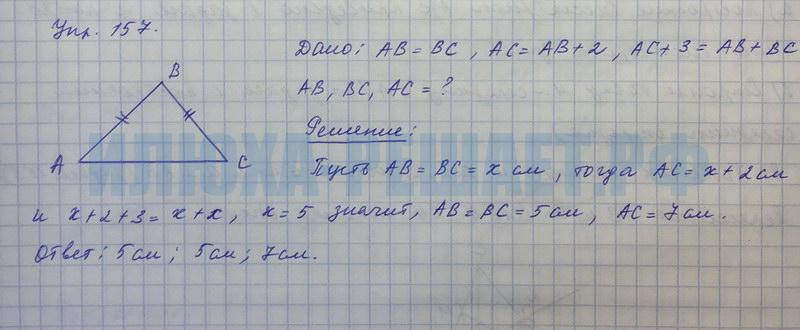 Упр. 157.
Дано: AB = BC, AC = AB + 2, AC + 3 = AB + BC
AB, BC, AC = ?
Решение:
Пусть AB = BC = x см, тогда AC = x + 2 см
и x + 2 + 3 = x + x, x = 5 значит, AB = BC = 5 см, AC = 7 см.
Ответ: 5 см; 5 см; 7 см.
B
A
C